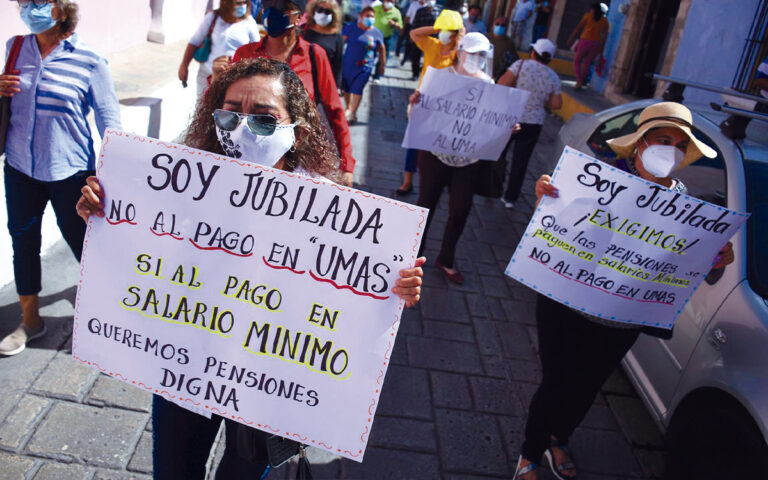 SOY JUBILADA
NO AL PAGO EN "UMAS"
SI AL PAGO EN
SALARIO MINIMO
QUEREMOS PENSIONES
DIGNA
SI
AL SALARIO MINIMO
NO AL UMA
Soy Jubilada
¡EXIGIMOS!
Que las PENSIONES se
paguen en salarios Mínimos
NO AL PAGO EN UMAS